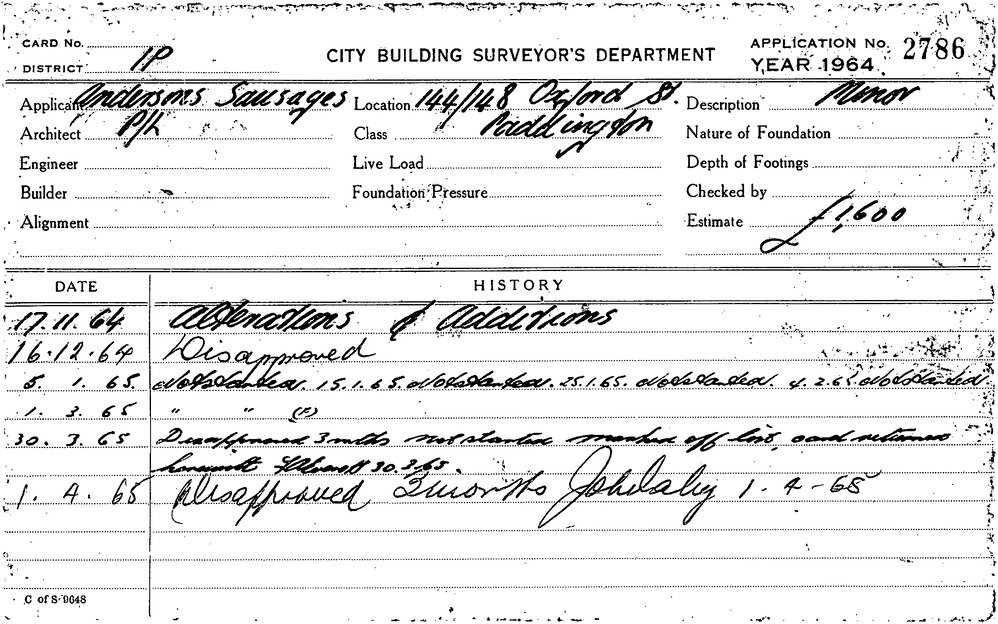 CARD No.
DISTRICT 1P
CITY BUILDING SURVEYOR'S DEPARTMENT
APPLICATION No. 2786
YEAR 1964
Applicant Andersons Sausages
Location 144/148 Oxford St.
Description Minor
Architect P/L
Class Paddington
Nature of Foundation
Engineer
Live Load
Depth of Footings
Builder
Foundation Pressure
Checked by
Alignment
Estimate £1,600
DATE HISTORY
17.11.64 Alterations & Additions
16.12.64 Disapproved
5. 1. 65 Not started. 15.1.65. Not started. 25.1.65. Not started. 4.2.65 Not started
1. 3. 65 " " (F)
30. 3. 65 Disapproved 3 mths not started marked off list, card returned
herewith 30.3.65.
1. 4. 65 Disapproved 3 months 1-4-65
C of S 9648